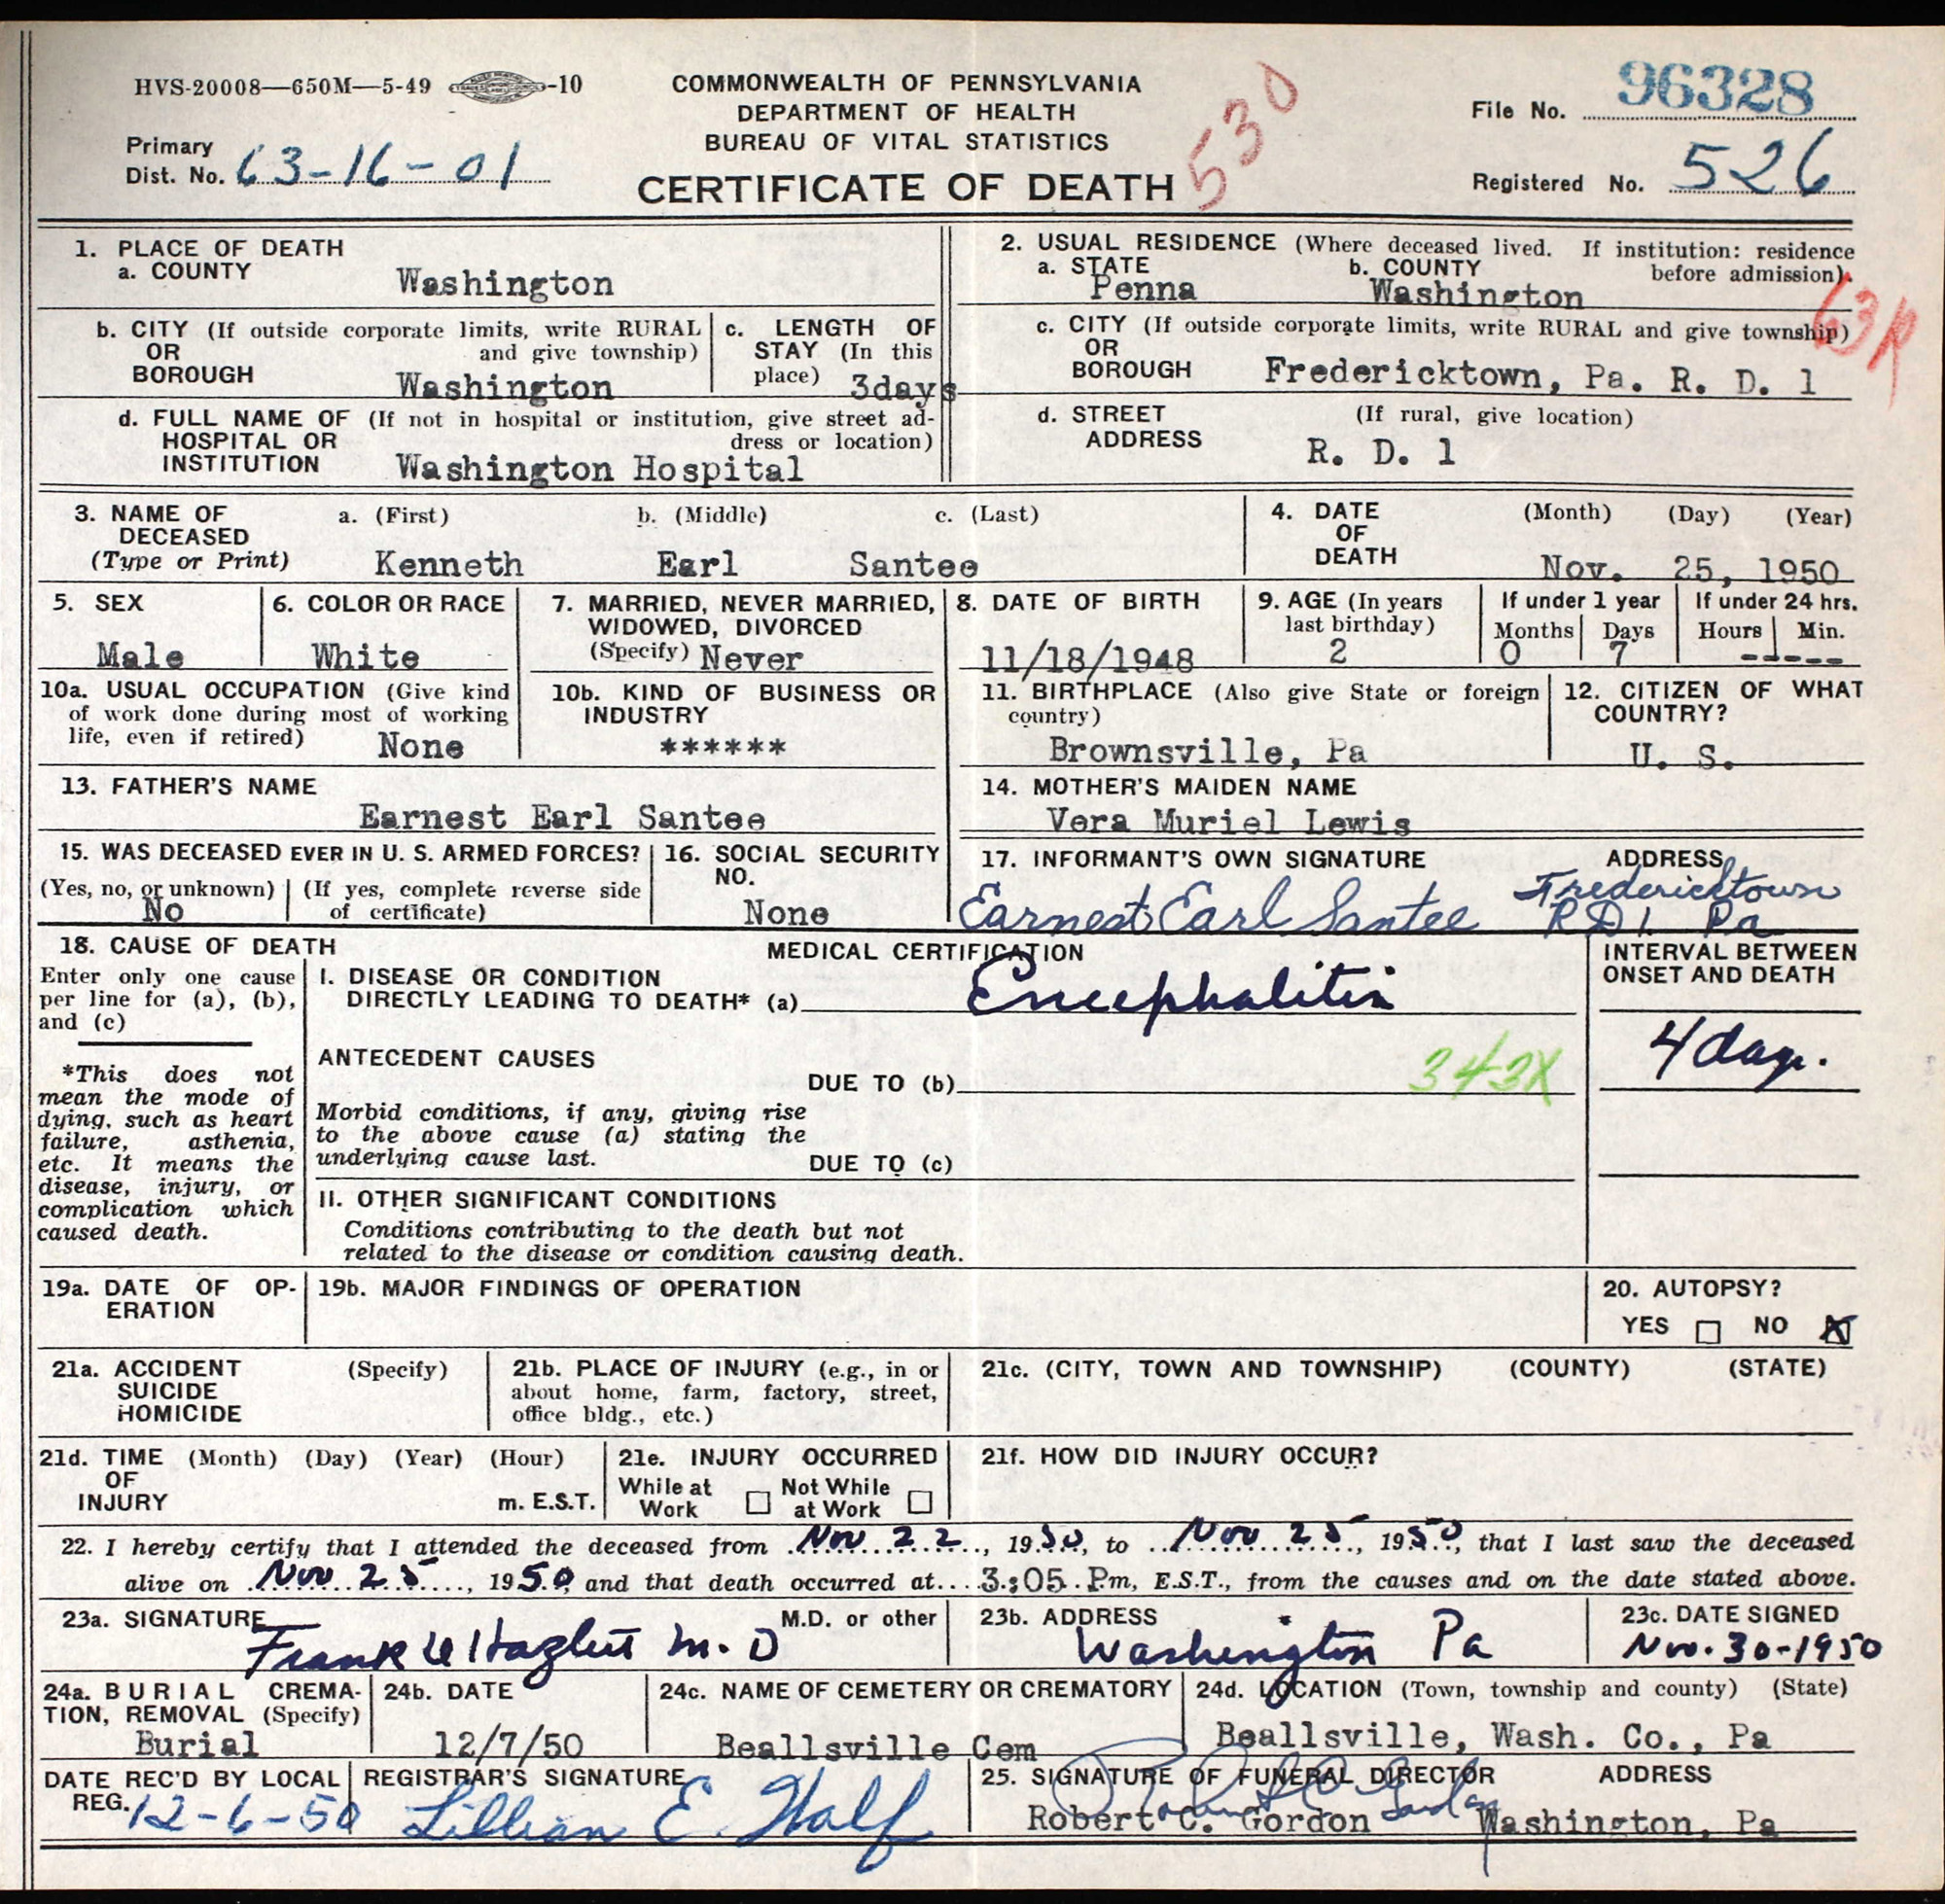 HVS-20008—650M—5-49 -10
COMMONWEALTH OF PENNSYLVANIA
DEPARTMENT OF HEALTH
BUREAU OF VITAL STATISTICS
CERTIFICATE OF DEATH
530
File No. 96328
Primary
Dist. No. 63-16-01
Registered No. 526
1. PLACE OF DEATH
a. COUNTY
Washington
2. USUAL RESIDENCE (Where deceased lived. If institution: residence
before admission).
a. STATE
Penna
b. COUNTY
Washington
63R
b. CITY (If outside corporate limits, write RURAL
OR and give township)
BOROUGH
Washington
c. LENGTH OF
STAY (In this
place) 3days
c. CITY (If outside corporate limits, write RURAL and give township)
OR
BOROUGH Fredericktown, Pa. R. D. 1
d. FULL NAME OF (If not in hospital or institution, give street ad-
HOSPITAL OR dress or location)
INSTITUTION Washington Hospital
d. STREET (If rural, give location)
ADDRESS
R. D. 1
3. NAME OF
DECEASED
(Type or Print)
a. (First) b. (Middle) c. (Last)
Kenneth Earl Santee
4. DATE
OF
DEATH
(Month) (Day) (Year)
Nov. 25, 1950
5. SEX
Male
6. COLOR OR RACE
White
7. MARRIED, NEVER MARRIED,
WIDOWED, DIVORCED
(Specify) Never
8. DATE OF BIRTH
11/18/1948
9. AGE (In years
last birthday)
2
If under 1 year
Months Days
0 7
If under 24 hrs.
Hours Min.
------
10a. USUAL OCCUPATION (Give kind
of work done during most of working
life, even if retired) None
10b. KIND OF BUSINESS OR
INDUSTRY
******
11. BIRTHPLACE (Also give State or foreign
country)
Brownsville, Pa
12. CITIZEN OF WHAT
COUNTRY?
U. S.
13. FATHER'S NAME
Earnest Earl Santee
14. MOTHER'S MAIDEN NAME
Vera Muriel Lewis
15. WAS DECEASED EVER IN U. S. ARMED FORCES?
(Yes, no, or unknown) (If yes, complete reverse side
of certificate)
No
16. SOCIAL SECURITY
NO.
None
17. INFORMANT'S OWN SIGNATURE ADDRESS
Earnest Earl Santee Fredericktown
R D 1. Pa
18. CAUSE OF DEATH
Enter only one cause
per line for (a), (b),
and (c)
*This does not
mean the mode of
dying, such as heart
failure, asthenia,
etc. It means the
disease, injury, or
complication which
caused death.
MEDICAL CERTIFICATION
I. DISEASE OR CONDITION
DIRECTLY LEADING TO DEATH* (a) Encephalitis
ANTECEDENT CAUSES
DUE TO (b)
343X
Morbid conditions, if any, giving rise
to the above cause (a) stating the
underlying cause last.
DUE TO (c)
II. OTHER SIGNIFICANT CONDITIONS
Conditions contributing to the death but not
related to the disease or condition causing death.
INTERVAL BETWEEN
ONSET AND DEATH
4 days.
19a. DATE OF OP-
ERATION
19b. MAJOR FINDINGS OF OPERATION
20. AUTOPSY?
YES NO X
21a. ACCIDENT (Specify)
SUICIDE
HOMICIDE
21b. PLACE OF INJURY (e.g., in or
about home, farm, factory, street,
office bldg., etc.)
21c. (CITY, TOWN AND TOWNSHIP) (COUNTY) (STATE)
21d. TIME (Month) (Day) (Year) (Hour)
OF
INJURY m. E.S.T.
21e. INJURY OCCURRED
While at Not While
Work at Work
21f. HOW DID INJURY OCCUR?
22. I hereby certify that I attended the deceased from Nov 22, 1950, to Nov 25, 1950, that I last saw the deceased
alive on Nov 25, 1950 and that death occurred at 3:05 Pm, E.S.T., from the causes and on the date stated above.
23a. SIGNATURE M.D. or other
Frank Hazlett M. D
23b. ADDRESS
Washington Pa
23c. DATE SIGNED
Nov. 30-1950
24a. BURIAL CREMA-
TION, REMOVAL (Specify)
Burial
24b. DATE
12/7/50
24c. NAME OF CEMETERY OR CREMATORY
Beallsville Cem
24d. LOCATION (Town, township and county) (State)
Beallsville, Wash. Co., Pa
DATE REC'D BY LOCAL
REG. 12-6-50
REGISTRAR'S SIGNATURE
Lillian E. Half
25. SIGNATURE OF FUNERAL DIRECTOR ADDRESS
Robert C. Gordon
Robert C. Gordon Washington, Pa